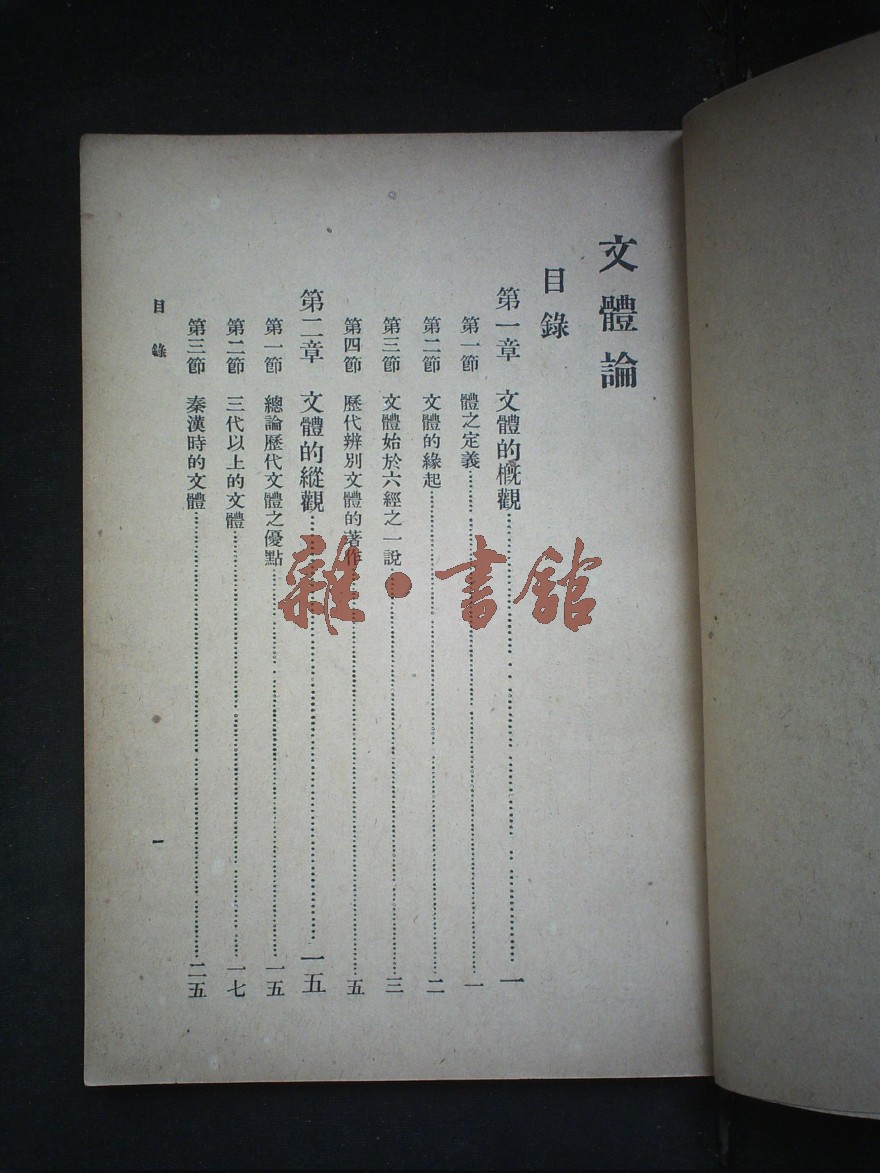 文體論
目錄
第一章 文體的概觀……一
第一節 體之定義……一
第二節 文體的緣起……二
第三節 文體始於六經之一說……三
第四節 歷代辨別文體的著作……五
第二章 文體的縱觀……一五
第一節 總論歷代文體之優點……一五
第二節 三代以上的文體……一七
第三節 秦漢時的文體……二五
目錄 一
雜·書館